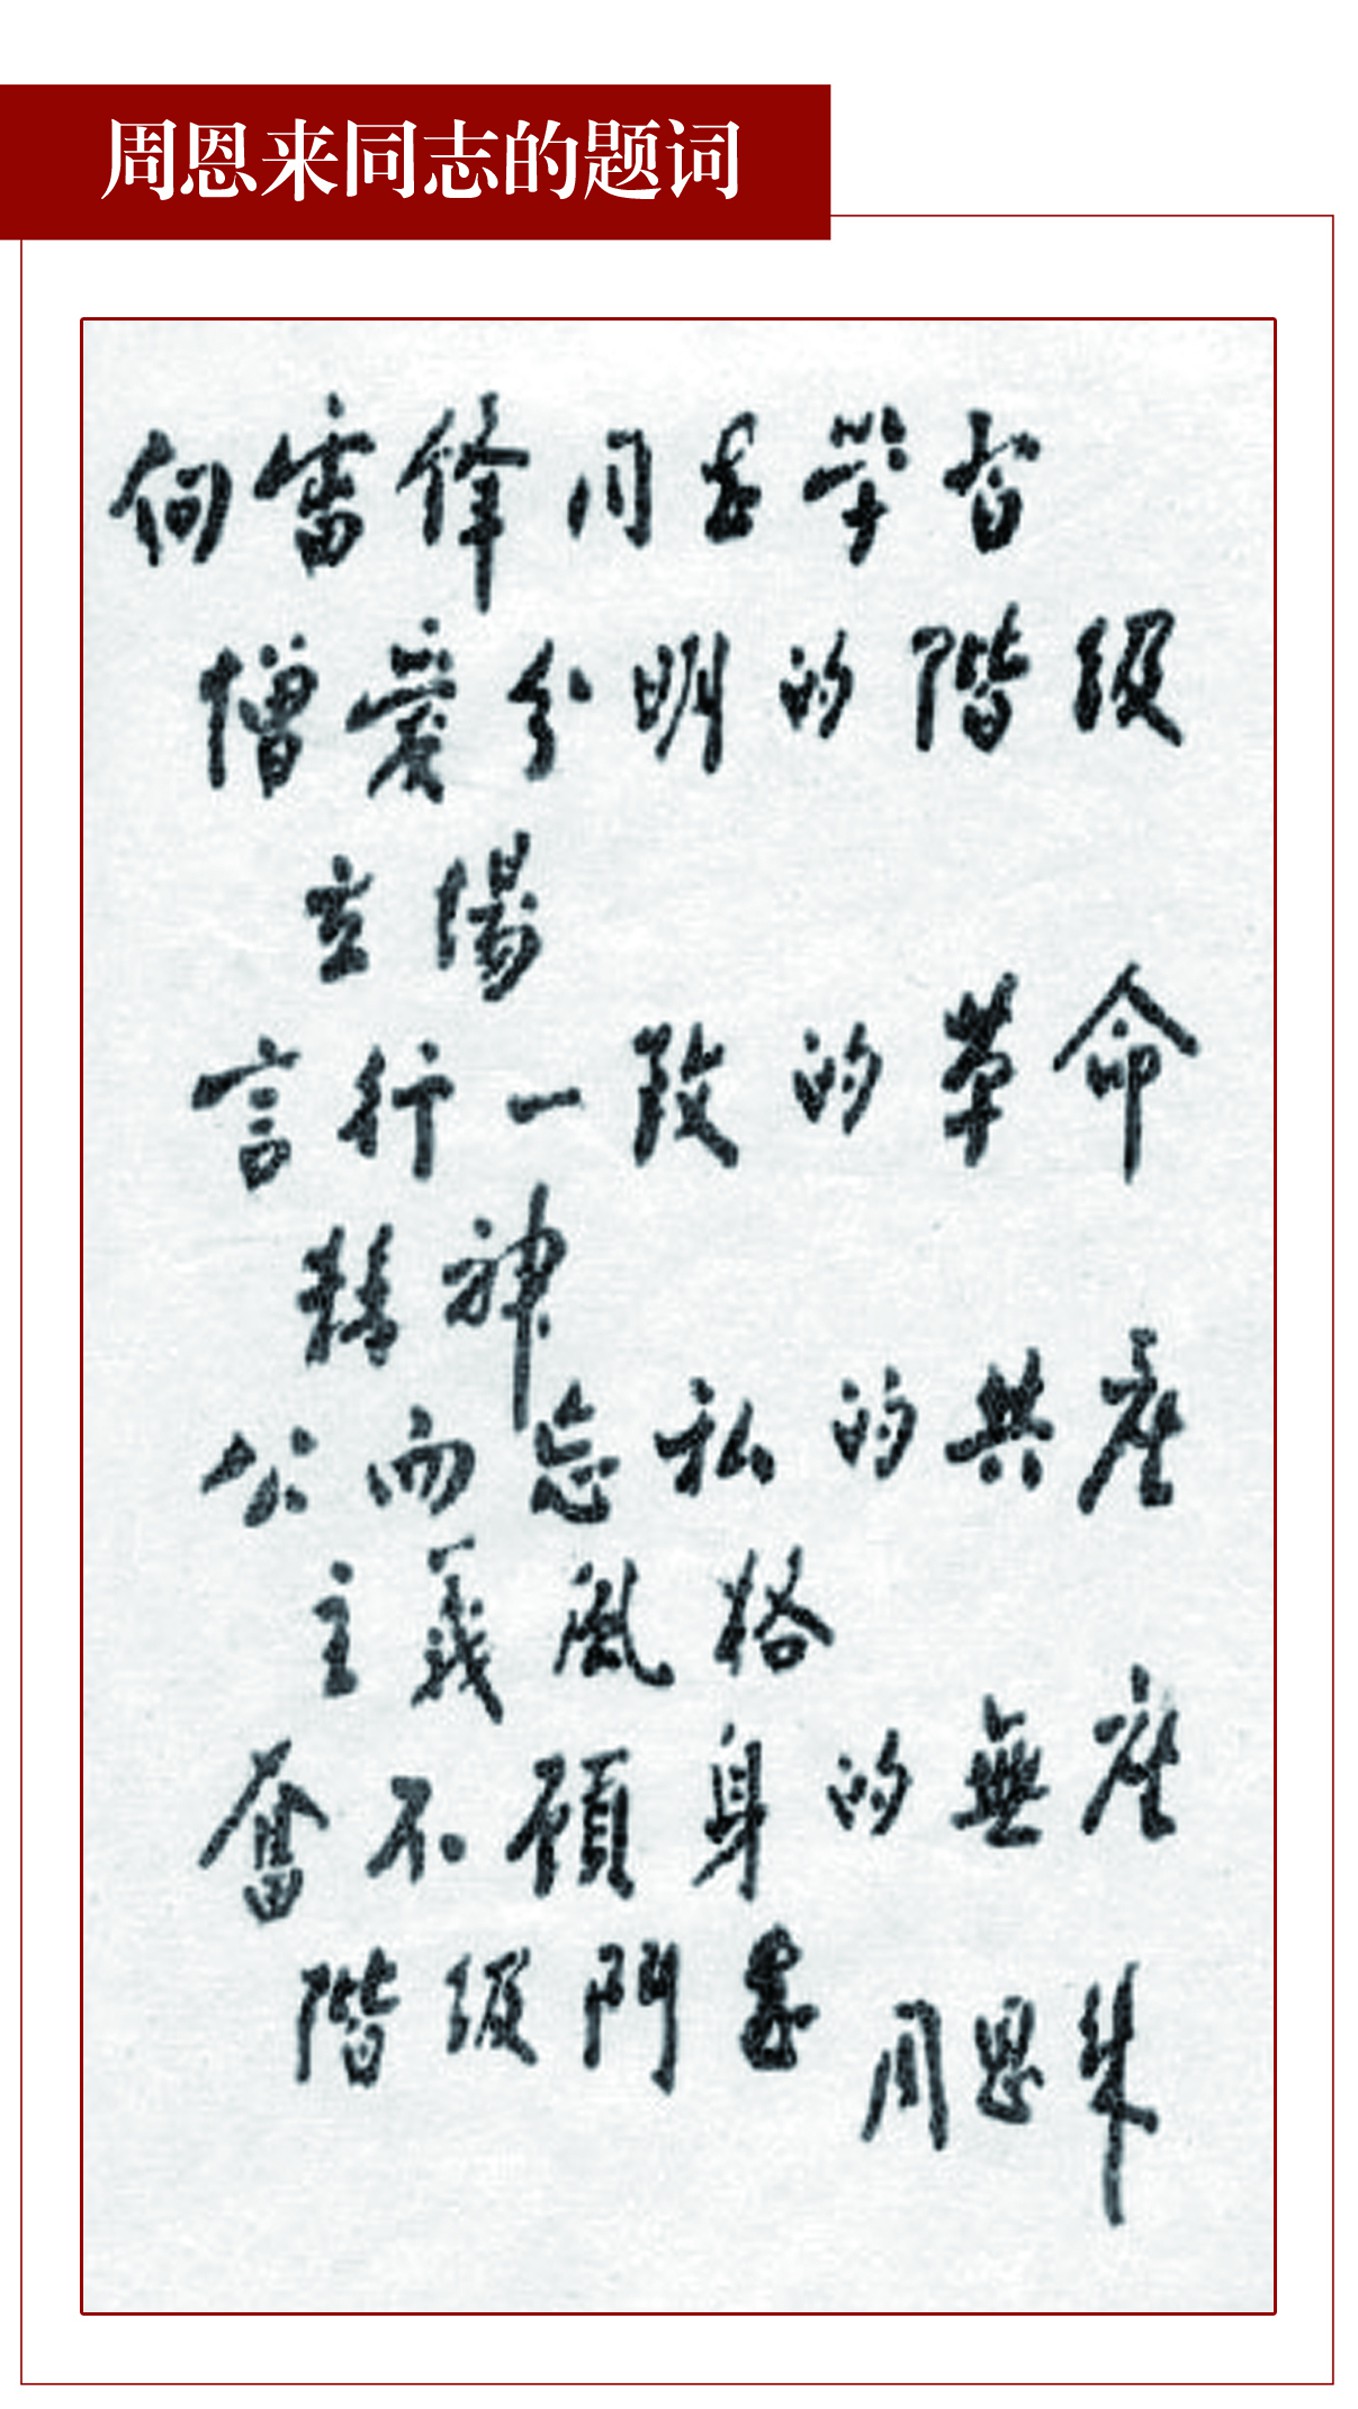 周恩来同志的题词
向雷锋同志学習
憎爱分明的階级
立場
言行一致的革命
精神
公而忘私的共産
主義風格
奮不顧身的無産
階级鬥志
周恩来